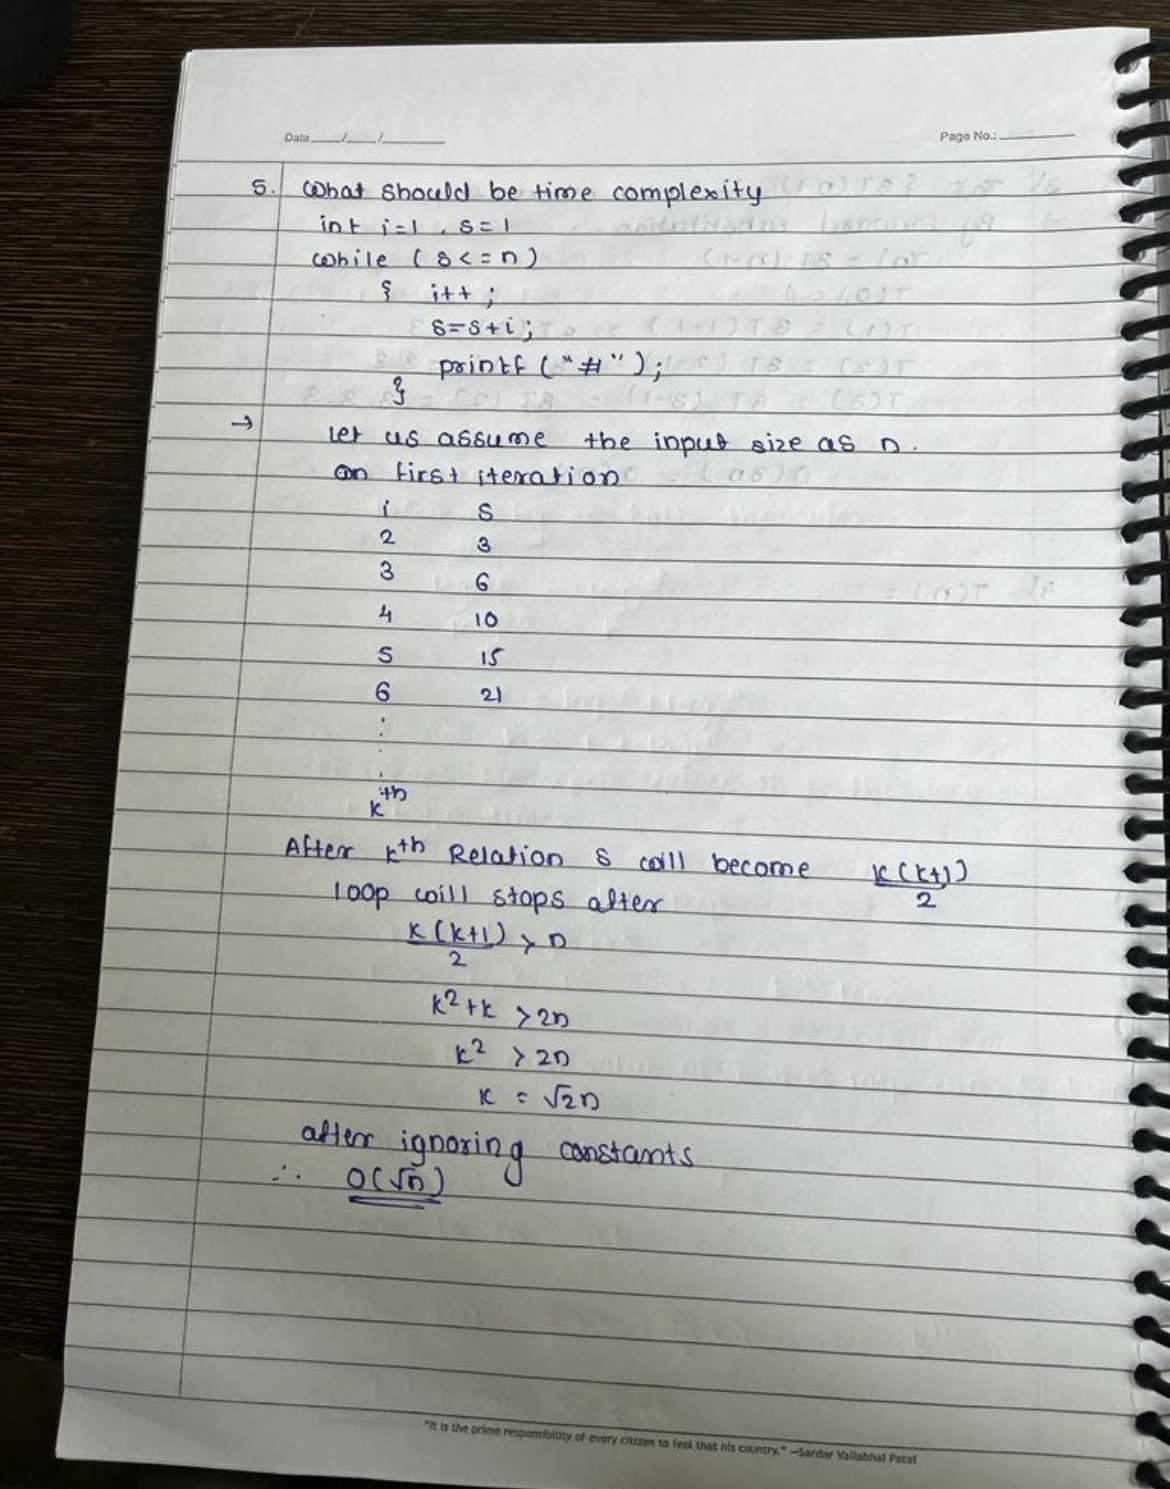 Date ___/___/______
Page No.: ________
5. What should be time complexity
int i=1, s=1
while (s<=n)
{ i++;
s=s+i;
printf ("#");
}
→ let us assume the input size as n.
on first iteration
i s
2 3
3 6
4 10
5 15
6 21
.
.
.
kth
After kth Relation s will become k(k+1)/2
loop will stops after
k(k+1)/2 > n
k²+k >2n
k² >2n
k = √2n
after ignoring constants
∴ O(√n)
"It is the prime responsibility of every citizen to feel that his country." —Sardar Vallabhai Patel